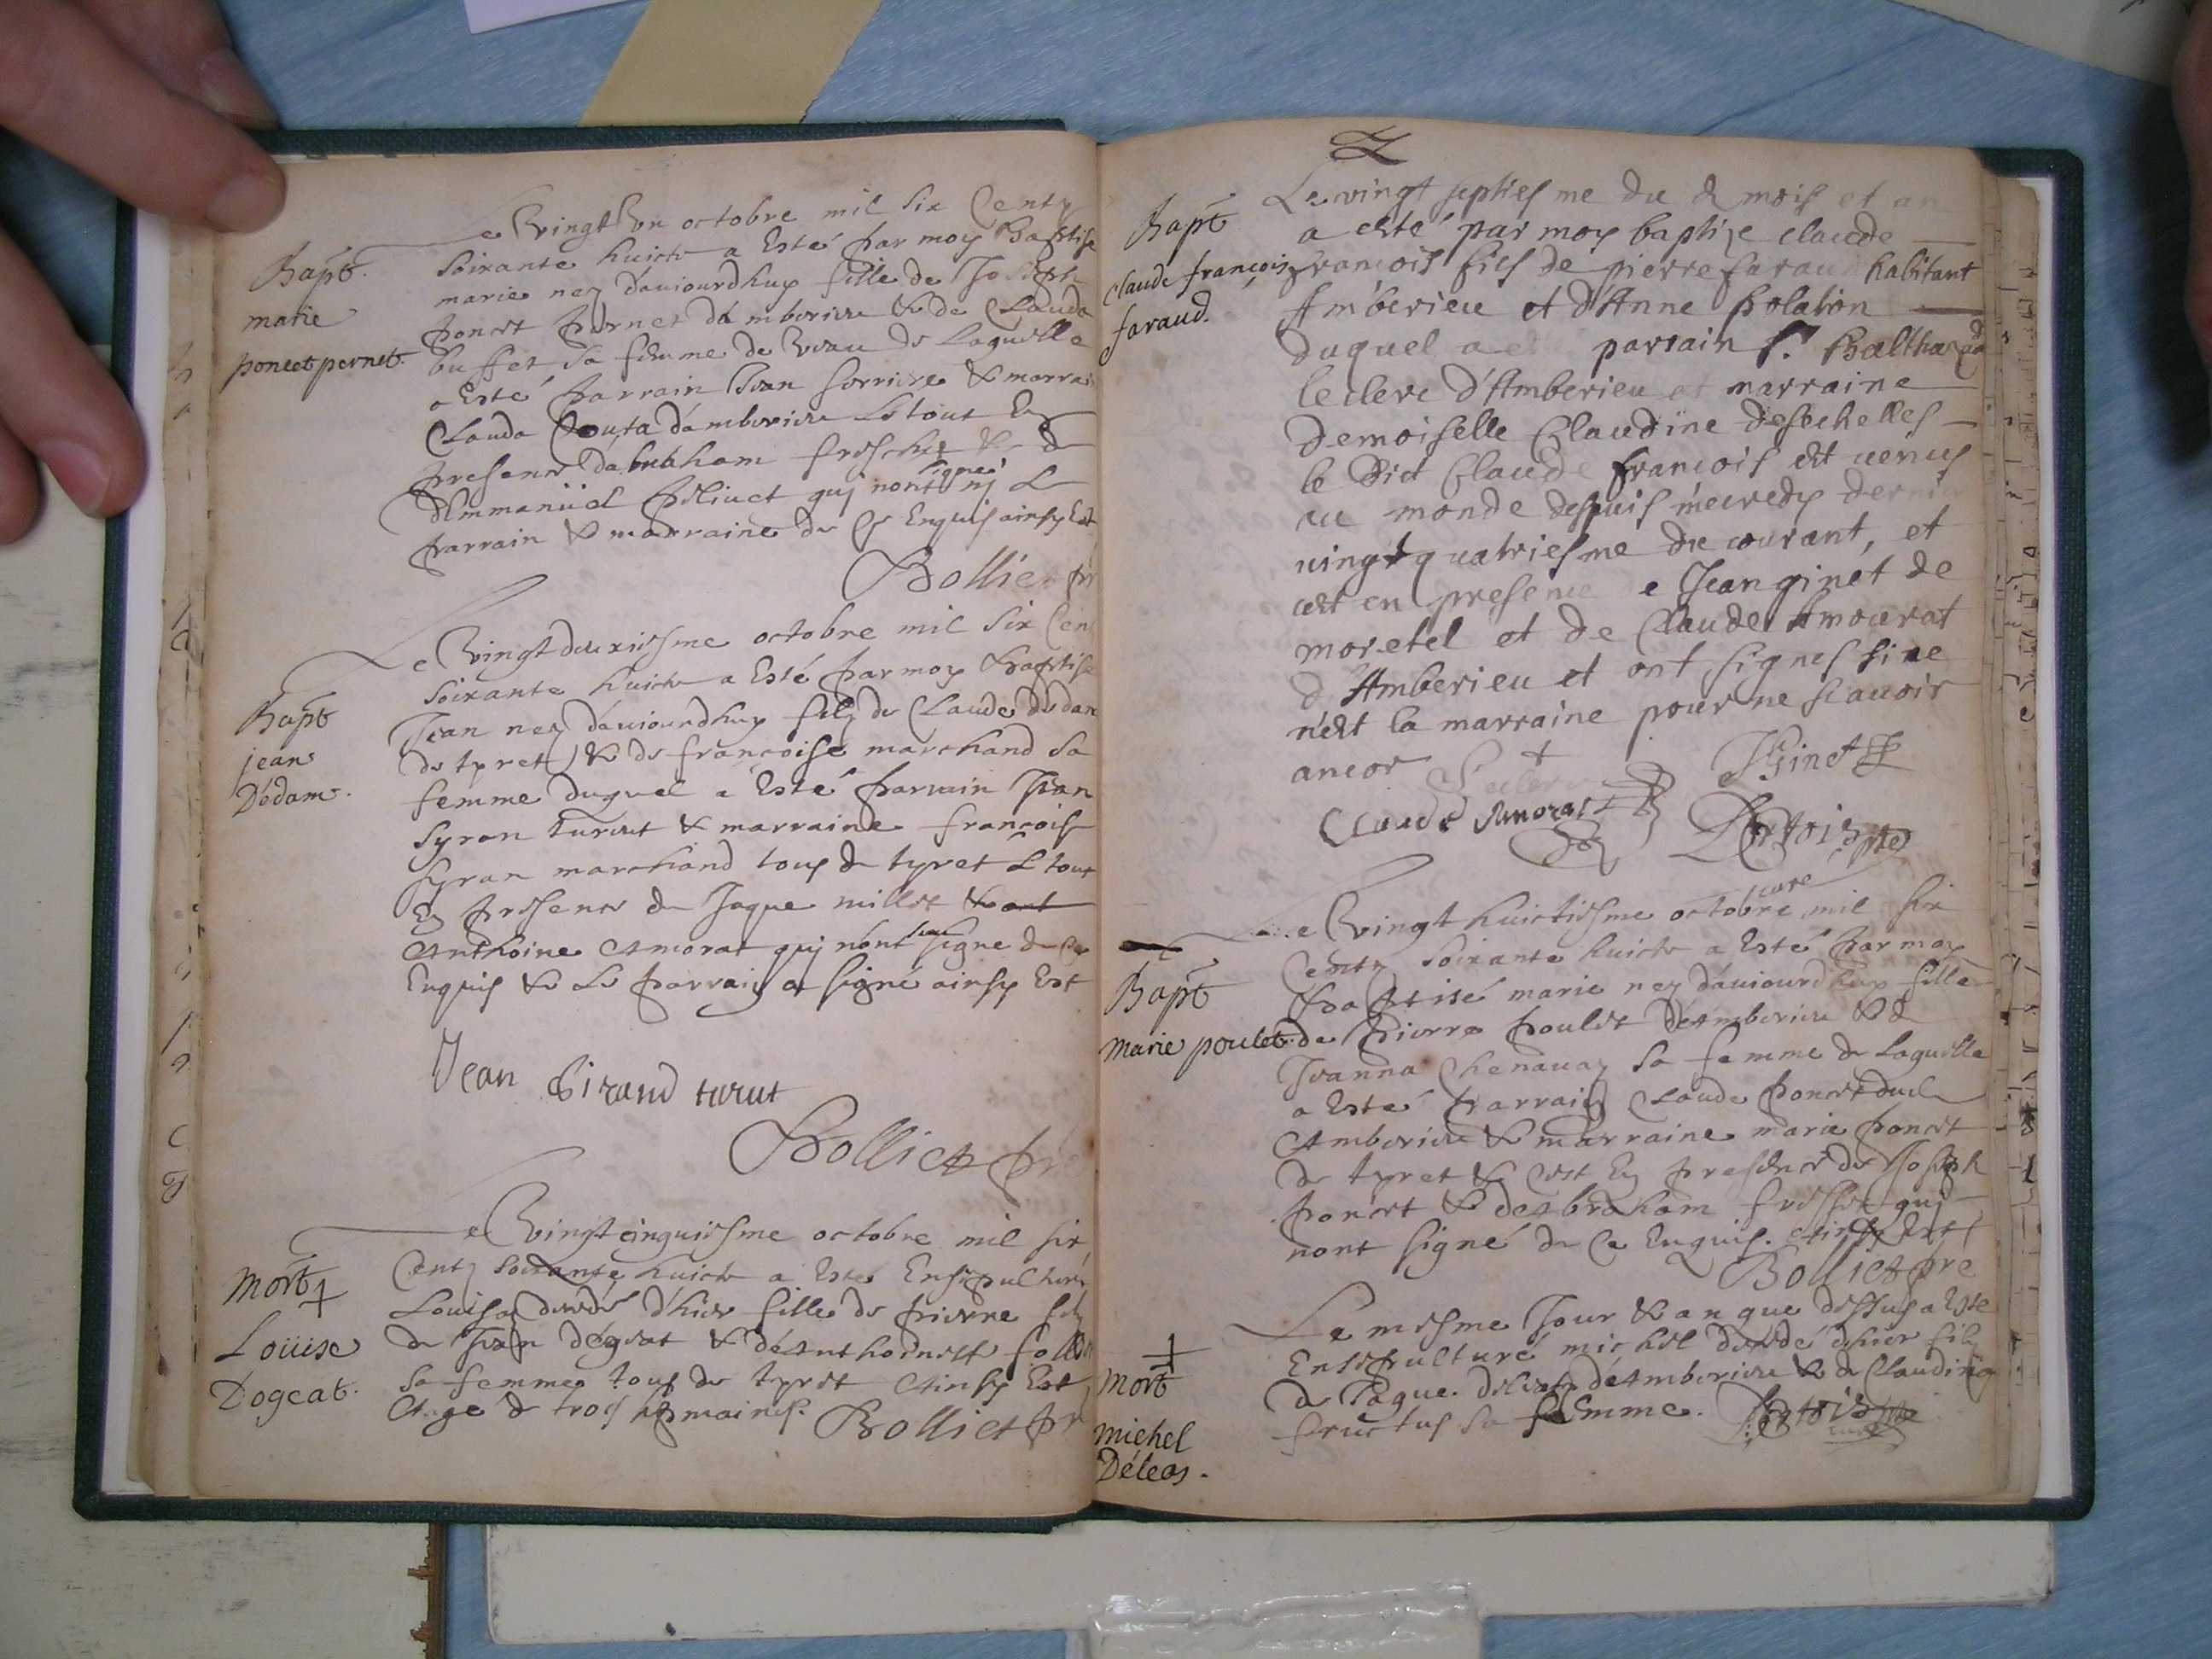 Bapt.
marie
poncet pernet.
Le vingt un octobre mil six Centz
soixante huict a Esté par moy Baptise
marie nez dauiourdhuy fille de Joseph
poncet pernet damberieu & de Clauda
buffet sa femme de Vvau de Laquelle
a Esté parrain Jean & marrai
Clauda damberieu Le tout En
presence dabraham freschet & d
Emmanüel peliuet quj nont signé nj Le
parrain & marraine de Ce Enquis ainsy Est
Bolliet pr
Bapt
jean
Dédam.
Le vingt deuxiesme octobre mil six Cen
soixante huict a Esté par moy Baptise
Jean nez dauiourdhuy filz de Claude dedan
de tyret & de francoise marchand sa
femme duquel a Esté parrain Jean
Syran turut & marraine francoise
Syran marchand tous de tyret Le tout
En presence de Jaque millet & ont
Anthoine Amorat quj nont signe de Ce
Enquis & Le parrain a signé ainsy Est
Jean Girand turut
Bolliet pre
Mort +
Loüise
Dogeat.
Le vingt cinquiesme octobre mil six
Centz soixante huict a Esté Ensepulturé
Louise decedé d'hier fille de pierre filz
de Jean degeat & d'Anthoinette
sa femme tous de tyret Ainsy Est
Aage de trois semaines. Bolliet pr
Bapt
Claude françois
faraud.
Le vingt septiesme du d mois et an
a esté par moy baptize claude
francois fils de pierre faraud habitant
Amberieu et d'Anne polation
duquel a esté parrain Sr. Balthazard
leclerc d'Amberieu et marraine
demoiselle Claudine deschelles
le dict Claude francois est uenus
au monde despuis mecredy dernier
uingt quatriesme du courant, et
cest en presence de Jean ginet de
moretel et de Claude Amourat
d'Amberieu et ont signes sine
n'est la marraine pour ne scauoir
ancor
Leclerc
JGinet
Claude Amorat
curé
Bapt
Marie poulet
Le vingt huictiesme octobre mil six
Centz soixante huict a Esté par moy
Baptisé marie nez dauiourdhuy fille
de pierre poulet d'Amberieu & de
Jeanna Chenauaz sa femme de Laquelle
a Esté parrain Claude poncet dud
Amberieu & marraine marie poncet
de tyret & cest En presence de Joseph
poncet & d'Abraham freschet quj
nont signé de Ce Enquis. Ainsy Est
Bolliet pre
+
Mort
Michel
Déléas.
Le mesme Jour & an que dessus a Esté
Ensepulturé michel decedé dhier filz
de Jaque deleas d'Amberieu & de Claudine
fructus sa femme.